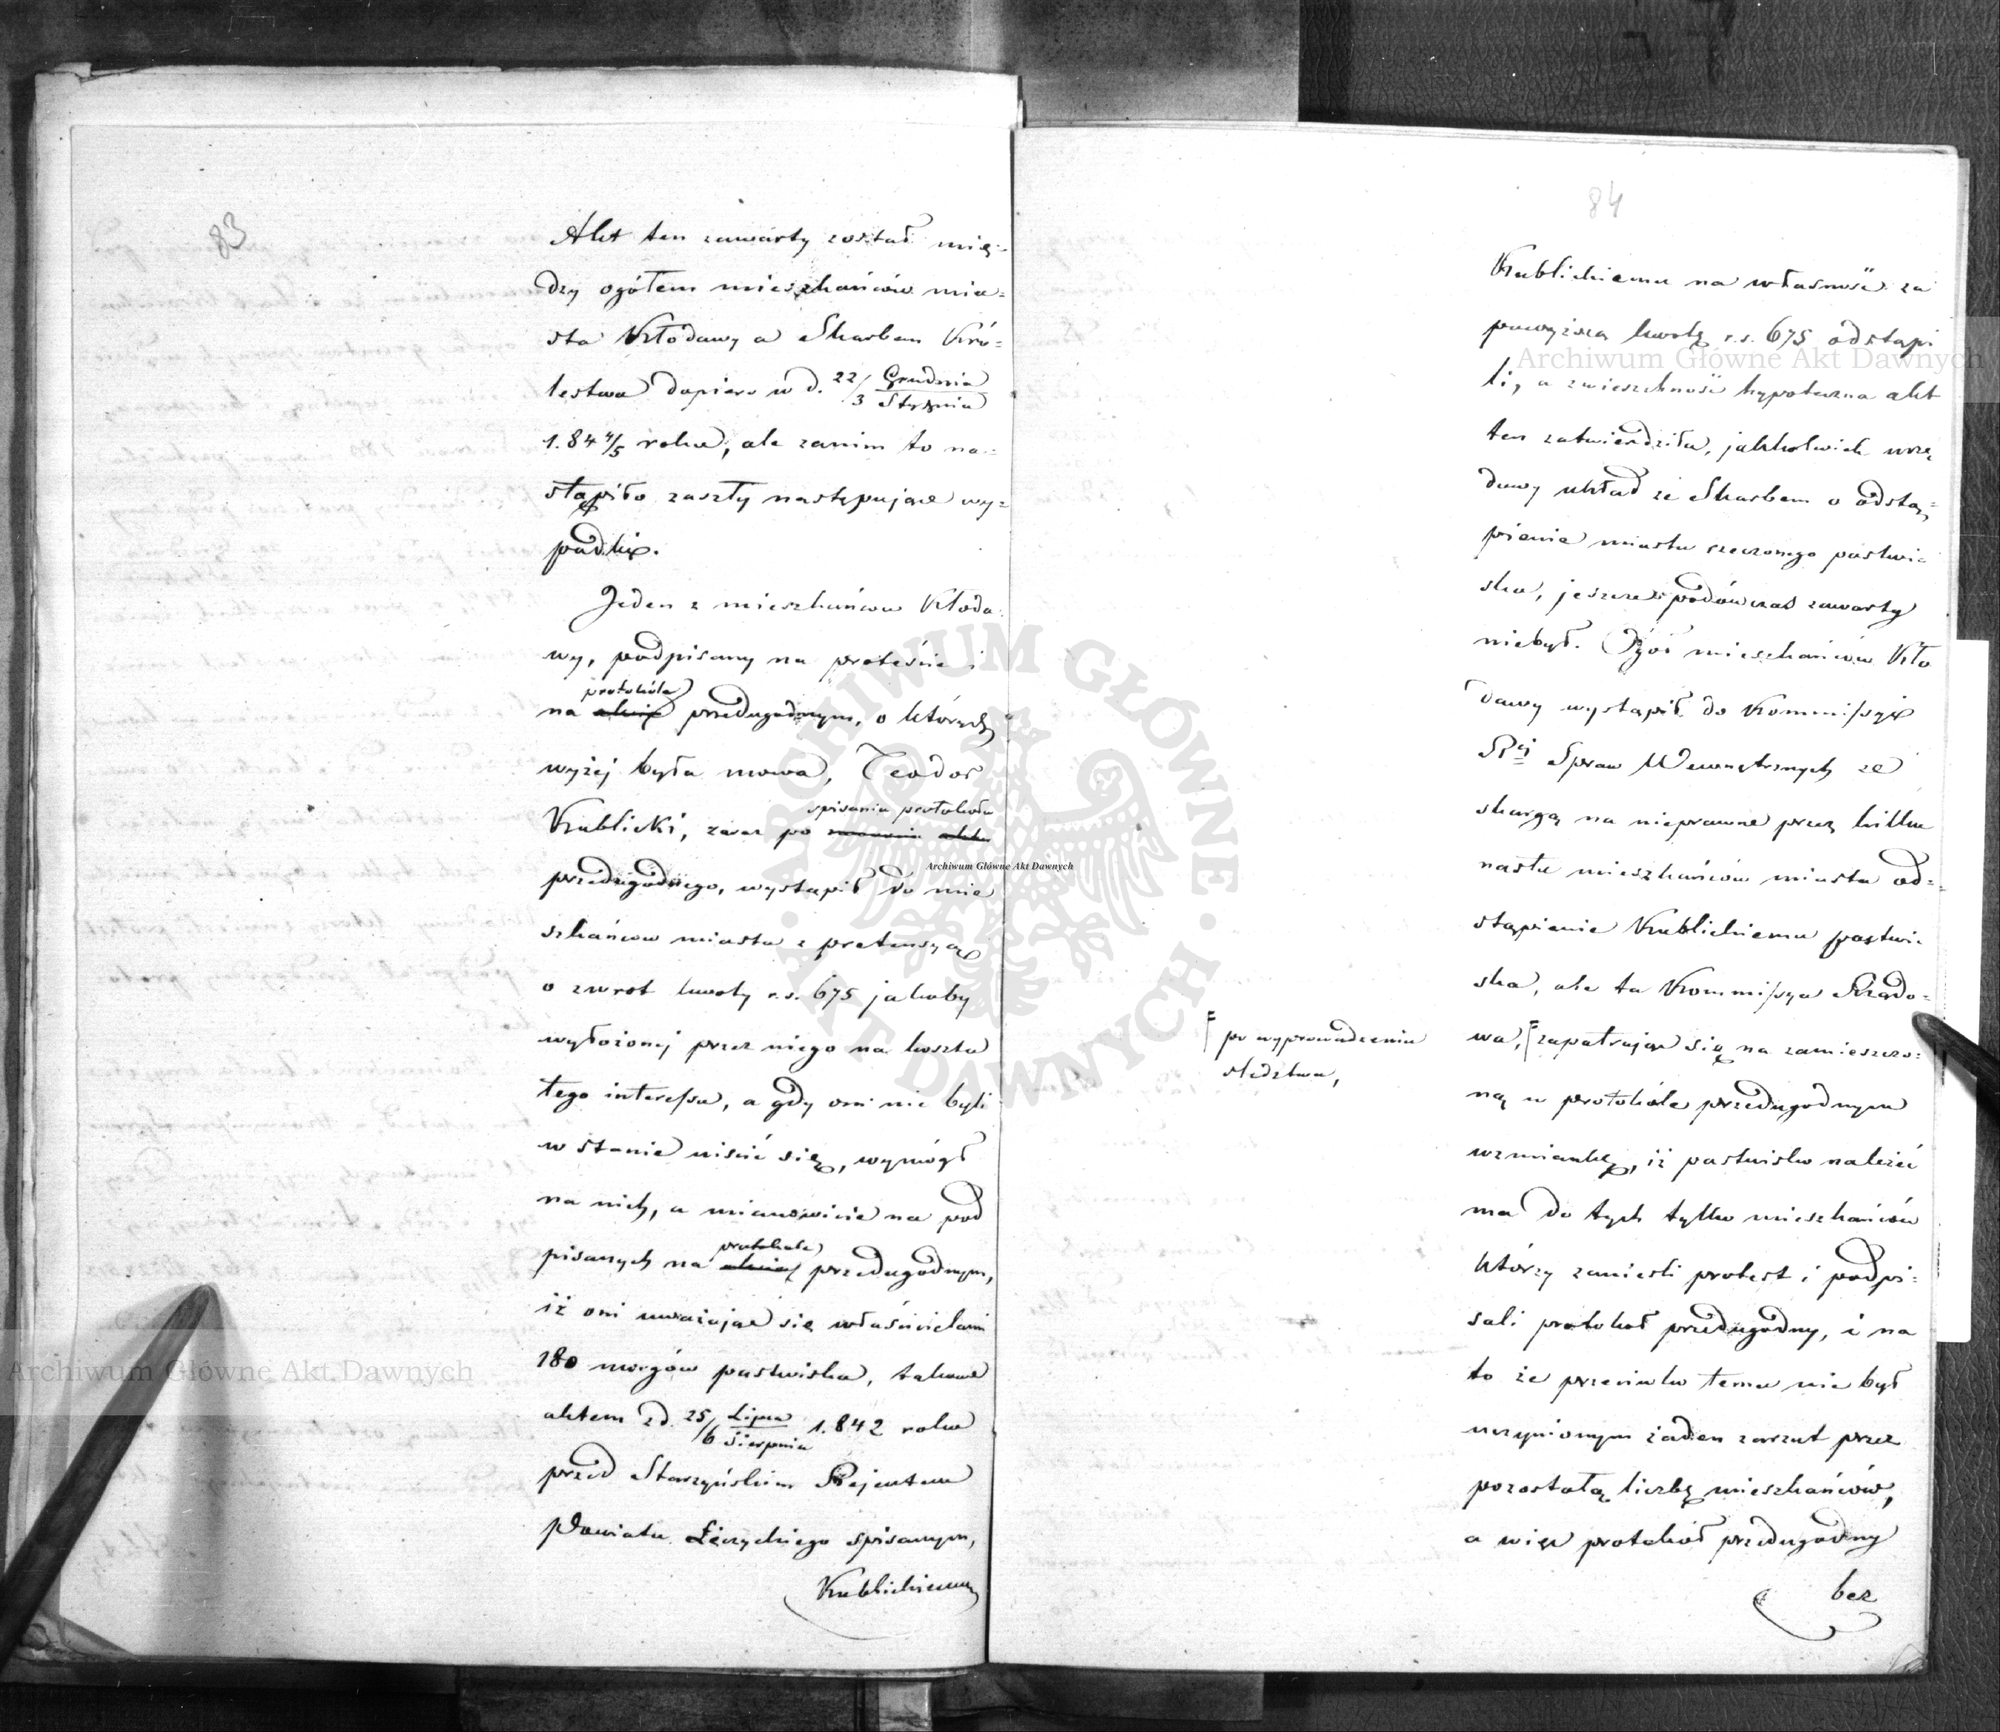 83
Akt ten zawarty został mię-
dzy ogółem mieszkańców mia-
sta Kłodawy a Skarbem Kró-
lestwa dopiero w d. 22/3 Grudnia Stycznia
1.84 4/5 roku, ale zanim to na-
stąpiło zaszły następujące wy-
padki.
Jeden z mieszkańców Kłoda-
wy, podpisany na proteście i
protokóle
na przedugodnym, o których
wyżej była mowa, Teodor
spisaniu protokołu
Kublicki, zaraz po
przedugodnego, wystąpił do mie
szkańców miasta z pretensyą
o zwrot kwoty r.s. 675 jakoby
wyłożonej przez niego na koszta
tego interessu, a gdy oni nie byli
w stanie uiścić się, wymógł
na nich, a mianowicie na pod
protokóle
pisanych na przedugodnym,
iż oni uważając się właścicielami
180 morgów pastwiska, takowe
aktem z d. 25/6 Lipca Sierpnia 1.842 roku
przed Starzyńskim Rejentem
Powiatu Łęczyckiego spisanym,
Kublickiemu
84
Kublickiemu na własność za
powyższą kwotę r.s. 675 odstąpi
li, a zwierzchność hypoteczna akt
ten zatwierdziła, jakkolwiek urzę
dowy układ ze Skarbem o odstą-
pienie miastu rzeczonego pastwi-
ska, jeszcze podówczas zawarty
niebył. Ogół mieszkańców Kło
dawy wystąpił do Kommissyi
Rej Spraw Wewnętrznych ze
skargą na nieprawne przez kilku
nastu mieszkańców miasta od-
stąpienie Kublickiemu pastwi-
ska, ale ta Kommissya Rządo-
wa, zapatrując się na zamieszczo-
po wyprowadzeniu
śledztwa,
ną w protokóle przedugodnym
wzmiankę, iż pastwisko należeć
ma do tych tylko mieszkańców
którzy zanieśli protest i podpi-
sali protokół przedugodny, i na
to że przeciwko temu nie był
uczynionym żaden zarzut przez
pozostałą liczbę mieszkańców,
a więc protokół przedugodny
bez
Archiwum Główne Akt Dawnych
Archiwum Główne Akt Dawnych
Archiwum Główne Akt Dawnych
ARCHIWUM GŁÓWNE AKT DAWNYCH